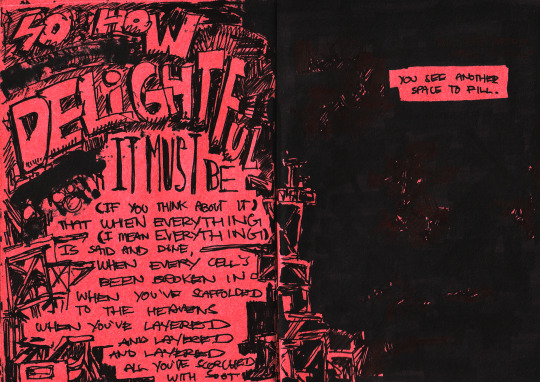 SO HOW
DELIGHTFUL
IT MUST BE
(IF YOU THINK ABOUT IT)
THAT WHEN EVERYTHING
(I MEAN EVERYTHING)
IS SAID AND DONE,
WHEN EVERY CELL'S
BEEN BROKEN IN
WHEN YOU'VE SCAFFOLDED
TO THE HEAVENS
WHEN YOU'VE LAYERED
AND LAYERED
AND LAYERED
ALL YOU'VE SCORCHED
WITH SOOT
YOU SEE ANOTHER
SPACE TO FILL.